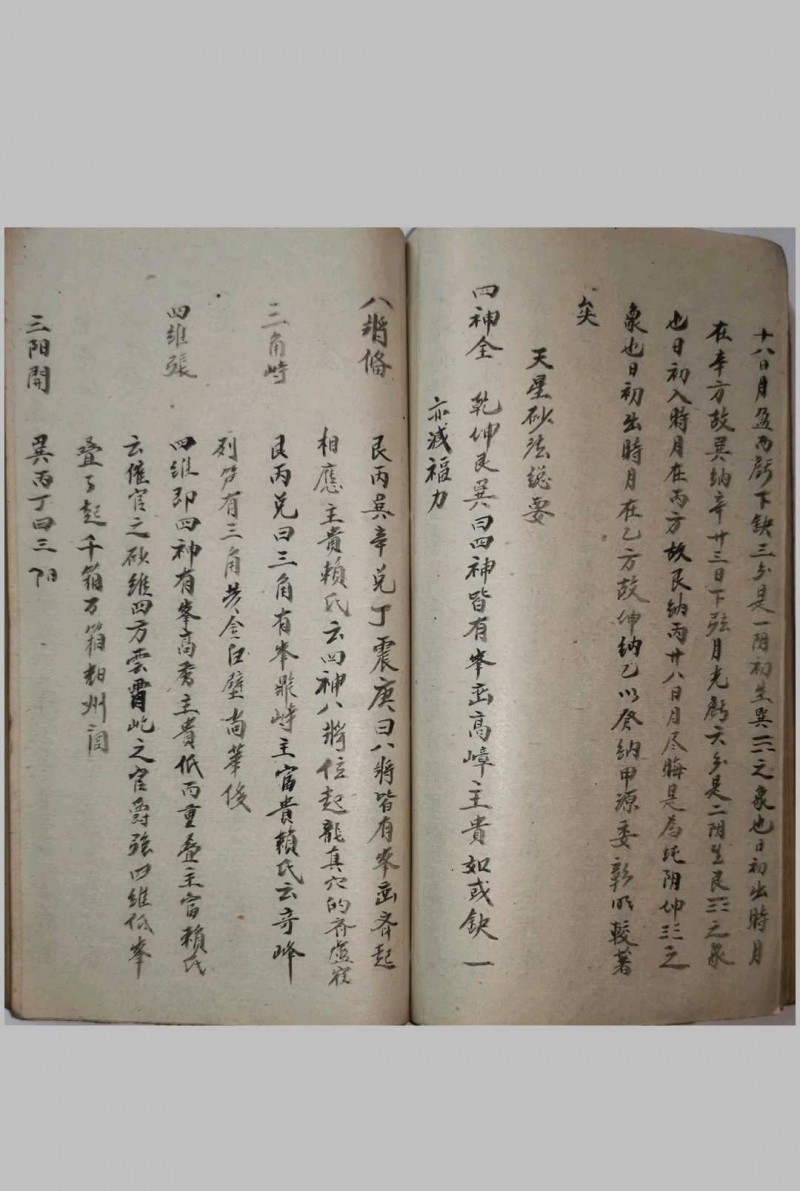 十八日月盈而虧下缺三分是一阴初生巽☴之象也日初出時月
在辛方故巽纳辛廿三日下弦月光虧六分是二阴生艮☶之象
也日初入時月在丙方故艮纳丙廿八日月尽晦是為纯阴坤☷之
象也日初出時月在乙方故坤纳乙以癸纳甲源委彰明較著
矣
天星砂法総要
四神全 乾坤艮巽曰四神皆有峯峦高嶂主貴如或缺一
亦减福力
八將偹 艮丙巽辛兑丁震庚曰八將皆有峯峦齐起
相應主貴賴氏云四神八將位起龍真穴的齐
三角峙 艮丙兑曰三角有峯鼎峙主富貴賴氏云奇峰
列笋有三角黄金白壁尚華侈
四維張 四維即四神有峯高者主貴低而重叠主富賴氏
云催官之砂維四方雲霄屹之官爵强四維低峯
叠了起千箱万箱
三阳開 巽丙丁曰三阳